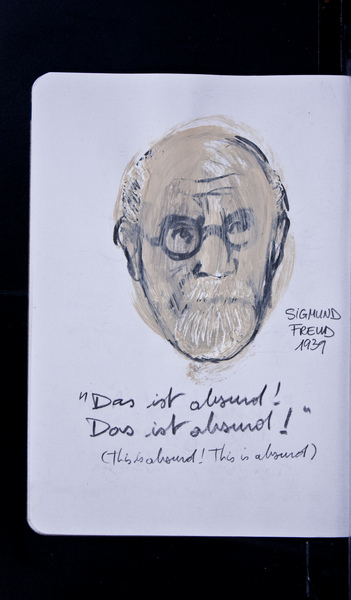 SIGMUND
FREUD
1939
"Das ist absurd!
Das ist absurd!"
(This is absurd! This is absurd)